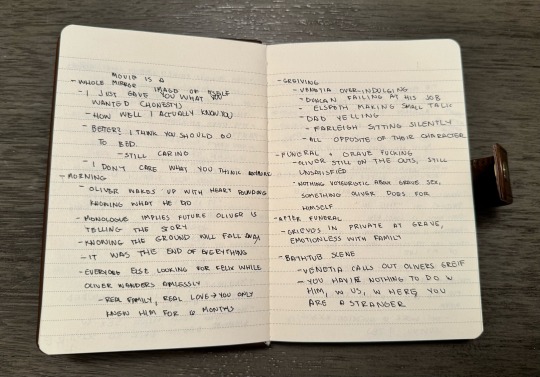 MOVIE IS A
- WHOLE MIRROR IMAGE OF ITSELF
- I JUST GAVE YOU WHAT YOU
WANTED (HONESTY)
- HOW WELL I ACTUALLY KNOW YOU
- BETTER? I THINK YOU SHOULD GO
TO BED.
- STILL CARING
- I DON'T CARE WHAT YOU THINK ANYMORE
- MORNING
- OLIVER WAKES UP WITH HEART POUNDING
KNOWING WHAT HE DID
- MONOLOGUE IMPLIES FUTURE OLIVER IS
TELLING THE STORY
- KNOWING THE GROUND WILL FALL AWAY
- IT WAS THE END OF EVERYTHING
- EVERYONE ELSE LOOKING FOR FELIX WHILE
OLIVER WANDERS AIMLESSLY
- REAL FAMILY, REAL LOVE → YOU ONLY
KNEW HIM FOR 6 MONTHS
- GREIVING
- VENETIA OVER-INDULGING
- DUNCAN FAILING AT HIS JOB
- ELSPETH MAKING SMALL TALK
- DAD YELLING
- FARLEIGH SITTING SILENTLY
- ALL OPPOSITE OF THEIR CHARACTER
- FUNERAL + GRAVE FUCKING
- OLIVER STILL ON THE OUTS, STILL
UNSATISFIED
- NOTHING VOYEURISTIC ABOUT GRAVE SEX,
SOMETHING OLIVER DOES FOR
HIMSELF
- AFTER FUNERAL
- GRIEVES IN PRIVATE AT GRAVE,
EMOTIONLESS WITH FAMILY
- BATHTUB SCENE
- VENETIA CALLS OUT OLIVERS GREIF
- YOU HAVE NOTHING TO DO W
HIM, W US, W HERE, YOU
ARE A STRANGER